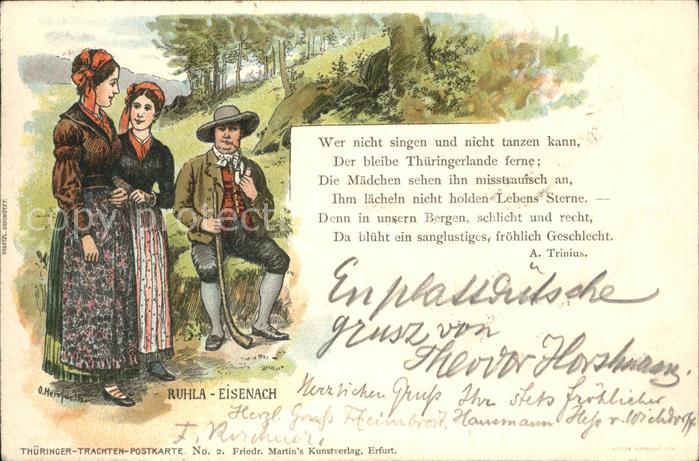 Wer nicht singen und nicht tanzen kann,
Der bleibe Thüringerlande ferne;
Die Mädchen sehen ihn misstrauisch an,
Ihm lächeln nicht holden Lebens Sterne. —
Denn in unsern Bergen, schlicht und recht,
Da blüht ein sanglustiges, fröhlich Geschlecht.
A. Trinius.
En plattdütsche
grusz von
Theodor Horstmann.
Herzlichen Gruß Ihr stets fröhlicher
Herzl. Gruß Heimbrod, Hausmann Heß v. Wichdorff
F. Kirchner.
GESETZL. GESCHÜTZT.
RUHLA - EISENACH
THÜRINGER-TRACHTEN-POSTKARTE. No. 2. Friedr. Martin's Kunstverlag, Erfurt.